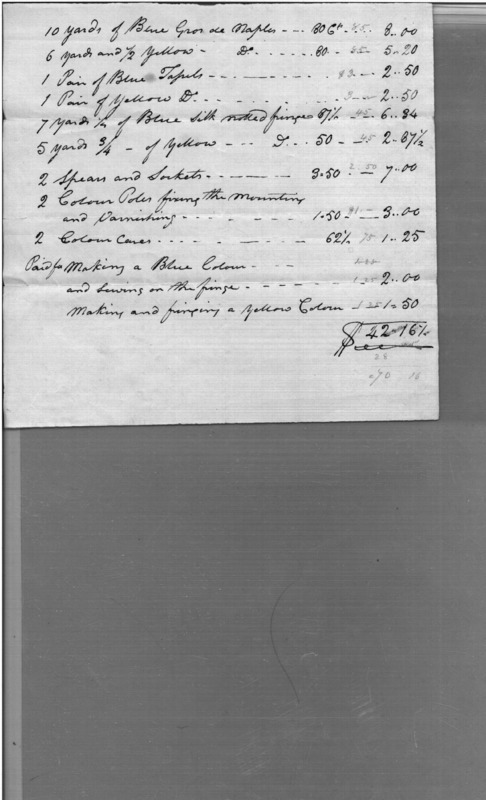 10 yards of Blue Gros de Naples - - - 80 Cts 45 8..00
6 yards and 1/2 Yellow - Do - - - 80 - 45 5..20
1 Pair of Blue Tapels - - - - - - 2..50
1 Pair of Yellow Do - - - - - - 2..50
7 Yards 1/4 of Blue Silk netted fringe 87 1/2 45 6..34
5 yards 3/4 - of Yellow - - - Do .. 50 - 45 2.87 1/2
2 Spears and Sockets - - - - 3.50 2 50 7..00
2 Colour Poles fixing the Mounting
and Varnishing - - - - - 1.50 3..00
2 Colour Cases - - - - - 62 1/2 75 1..25
Paid for Making a Blue Colour - - -
and Sewing on the fringe - - 1 25 2..00
Making and fringing a Yellow Colour 1 25 1..50
$42..16 1/2
28
70 16